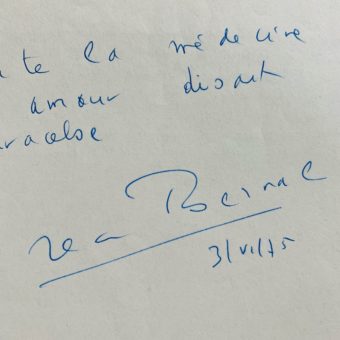 te la médecine
amour disait
aracelse
Jean Bernal
3/VI/75